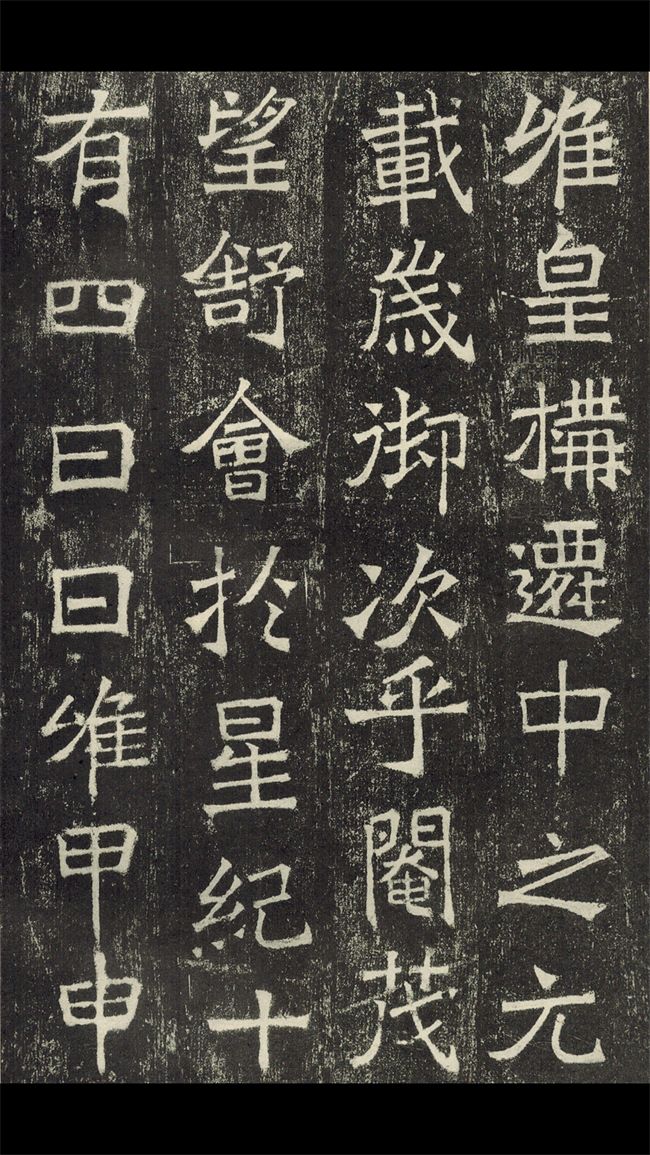 惟皇構遷中之元
載歲御次乎閹茂
望舒會於星紀十
有四日日惟甲申